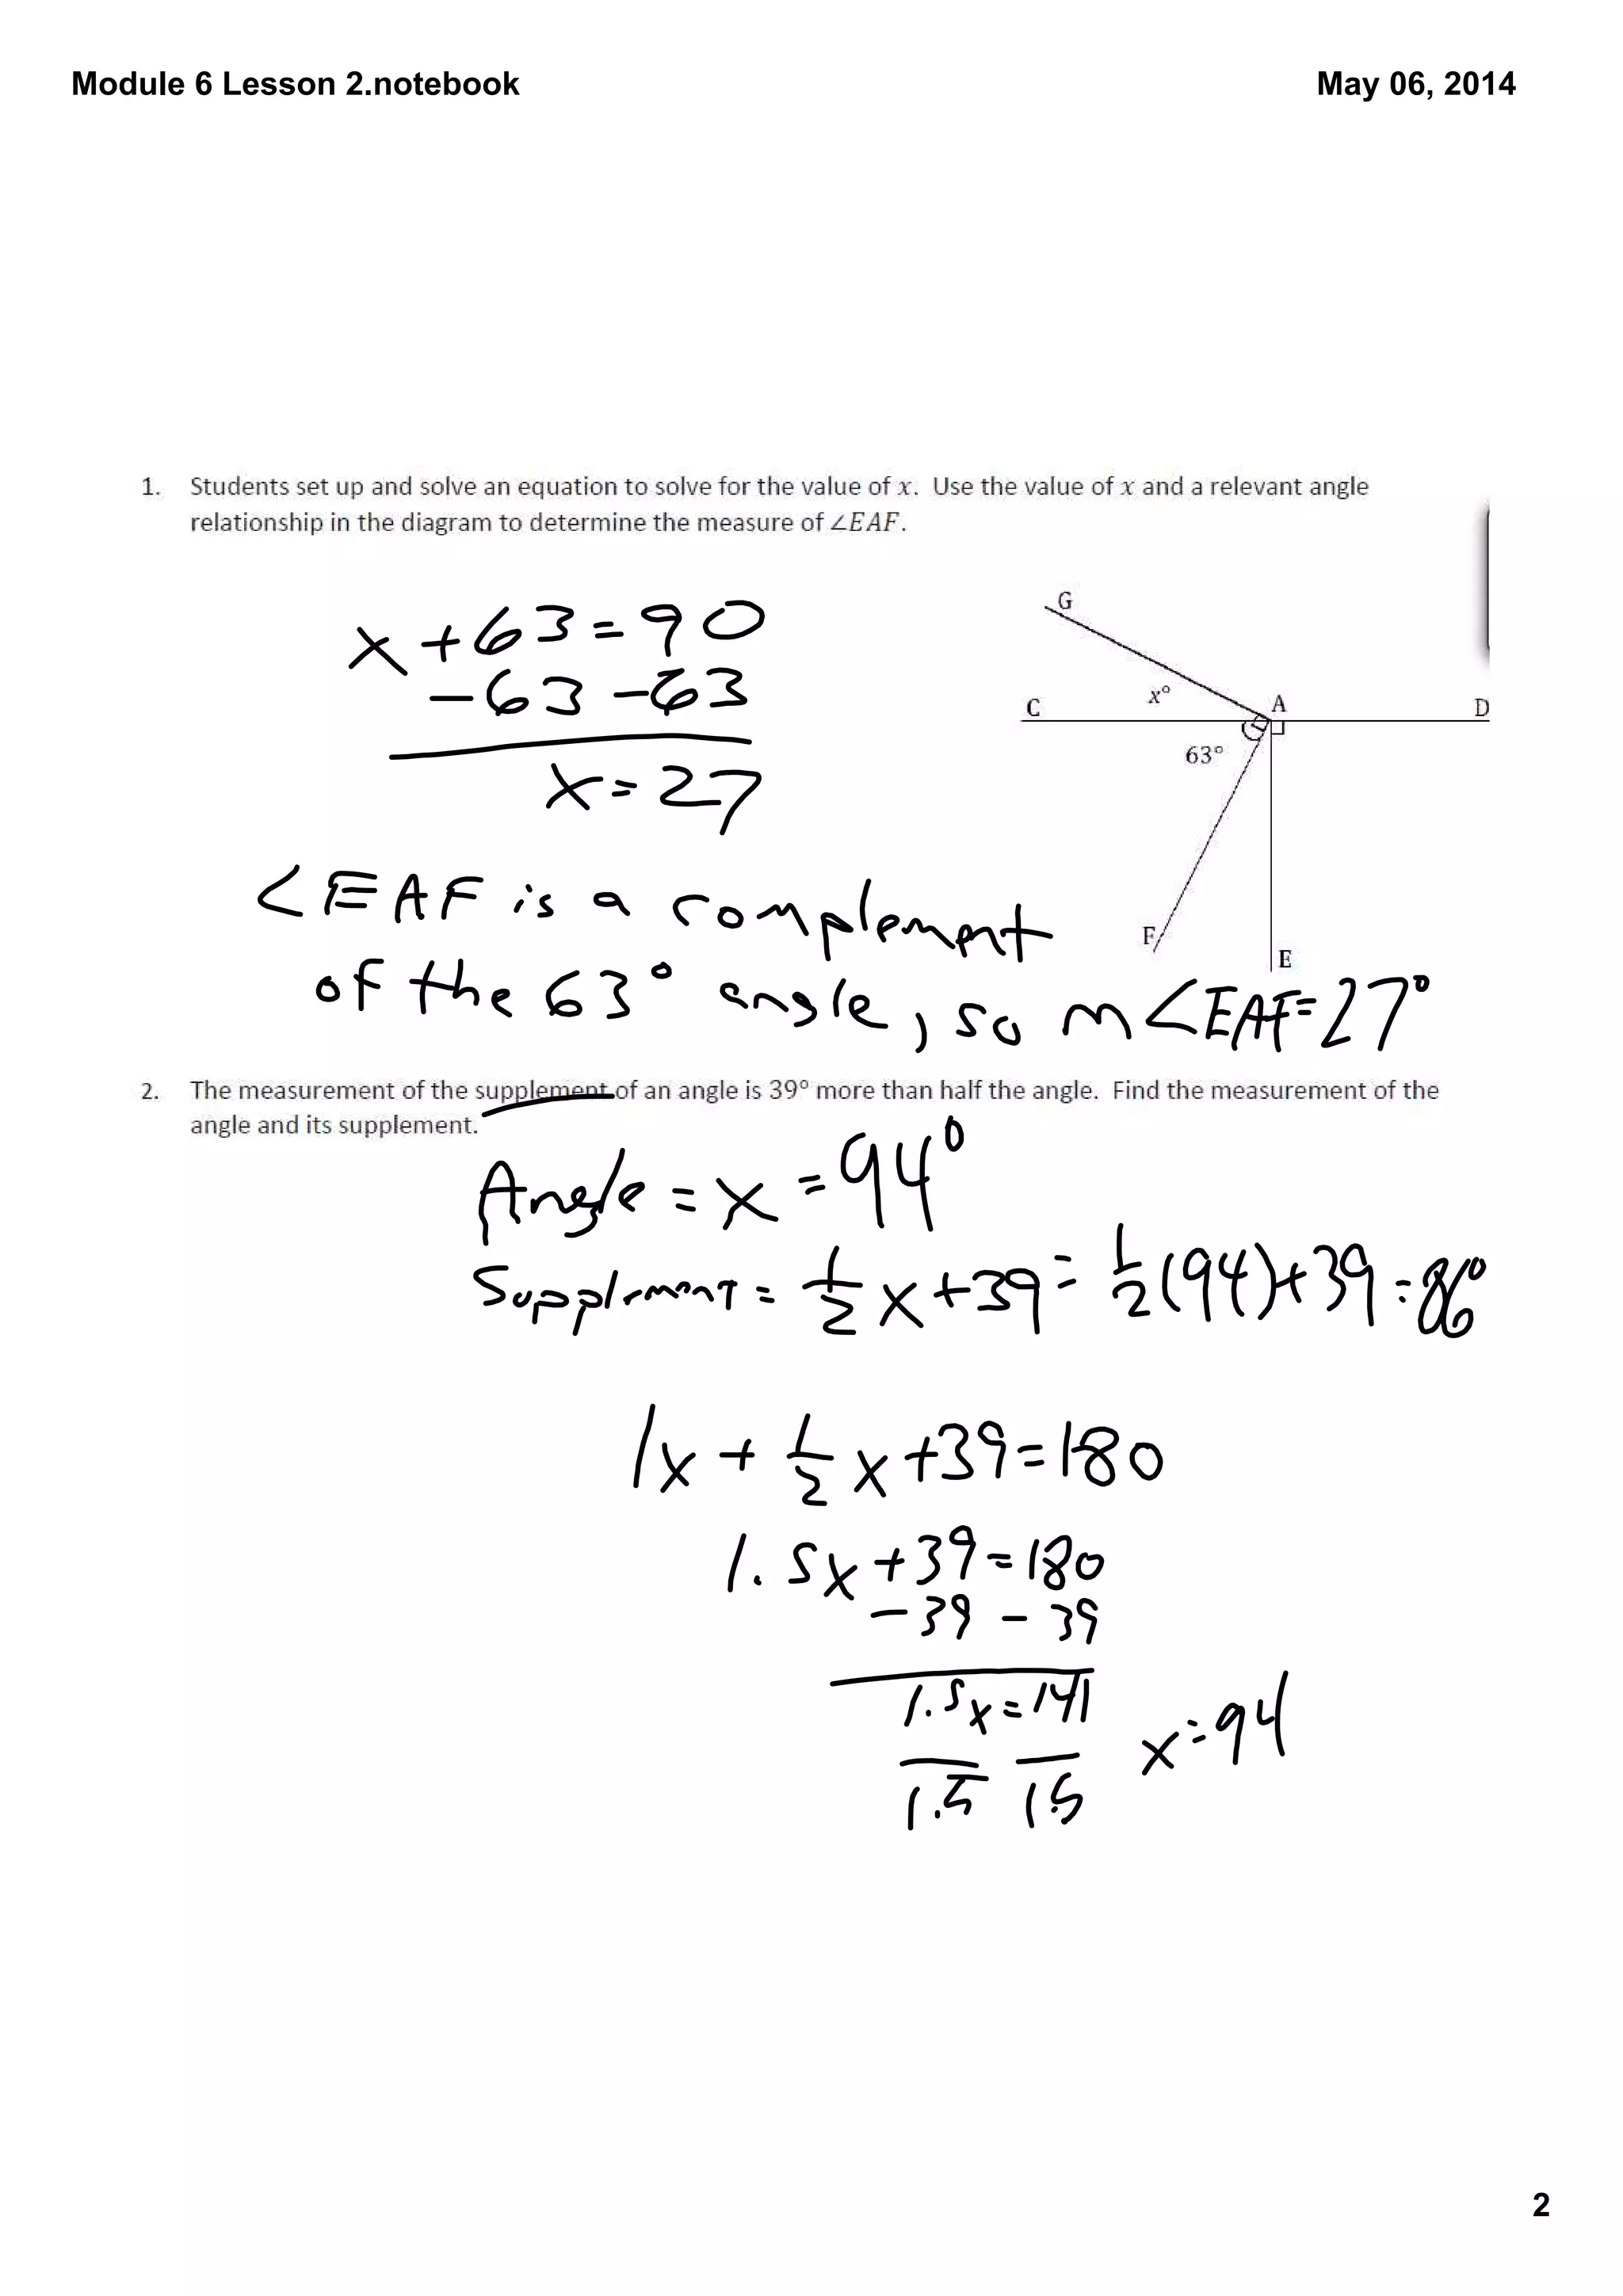 Module 6 Lesson 2.notebook
May 06, 2014
1. Students set up and solve an equation to solve for the value of x. Use the value of x and a relevant angle
relationship in the diagram to determine the measure of ∠EAF.
x + 63 = 90
- 63 - 63
x = 27
G
x°
C
A
D
63°
F
E
∠EAF is a complement
of the 63° angle, so m∠EAF = 27°
2. The measurement of the supplement of an angle is 39° more than half the angle. Find the measurement of the
angle and its supplement.
Angle = x = 94°
Supplement = 1/2 x + 39 = 1/2 (94) + 39 = 86°
1x + 1/2 x + 39 = 180
1.5x + 39 = 180
- 39 - 39
1.5x = 141
1.5 1.5
x = 94
2